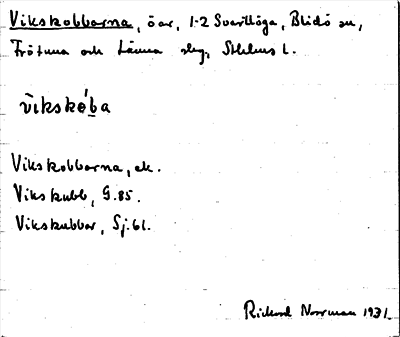 Vikskobbarna, öar, 1-2 Svartlöga, Blidö sn,
Frötuna och Länna slg, Sthlms l.
vikskoba
Vikskobbarna, ek.
Vikskubb, G.85.
Vikskubbar, Sj.61.
Rickard Norrman 1931.